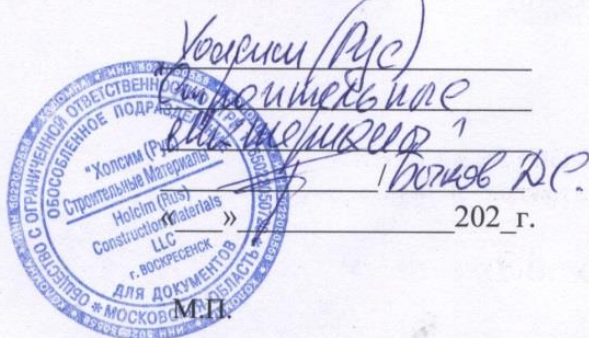 Холсим (Рус)
"Строительные
материалы"
/Бочков Д.С.
«___»____________________202_г.
М.П.
ОБЩЕСТВО С ОГРАНИЧЕННОЙ ОТВЕТСТВЕННОСТЬЮ
ОБОСОБЛЕННОЕ ПОДРАЗДЕЛЕНИЕ
"Холсим (Рус)
Строительные Материалы"
Holcim (Rus)
Construction Materials
LLC
г. ВОСКРЕСЕНСК
ДЛЯ ДОКУМЕНТОВ
* МОСКОВСКАЯ ОБЛАСТЬ *